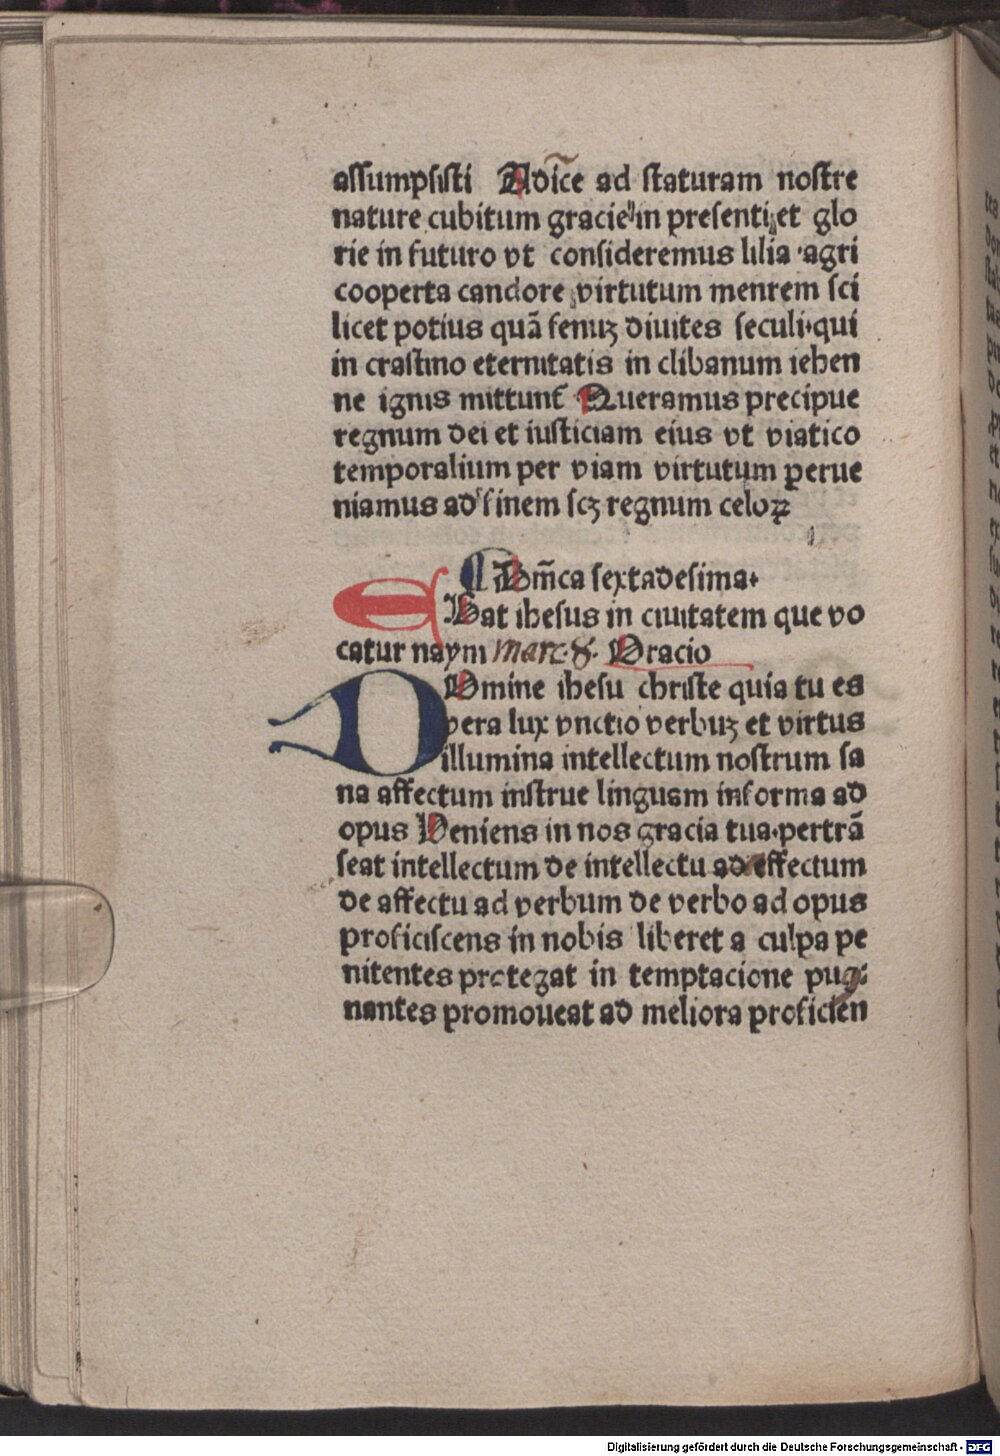 assumpsisti Adic̄e ad staturam nostre
nature cubitum gracie in presenti et glo
rie in futuro vt consideremus lilia agri
cooperta candore virtutum menrem sci
licet potius quā fenuꝫ diuites seculi·qui
in crastino eternitatis in clibanum iehen
ne ignis mittunt̄ Queramus precipue
regnum dei et iusticiam eius vt viatico
temporalium per viam virtutum ꝑerue
niamus ad finem scꝫ regnum celoꝝ
Dm̄ca sextadesima·
EBat ihesus in ciuitatem que vo
catur naym marc· 8· Oracio
DOmine ihesu christe quia tu es
vera lux vnctio verbuꝫ et virtus
illumina intellectum nostrum sa
na affectum instrue linguam informa ad
opus Veniens in nos gracia tua·pertrā
seat intellectum de intellectu ad effectum
de affectu ad verbum de verbo ad opus
proficiscens in nobis liberet a culpa pe
nitentes protegat in temptacione pug:
nantes promoueat ad meliora proficien
Digitalisierung gefördert durch die Deutsche Forschungsgemeinschaft - DFG